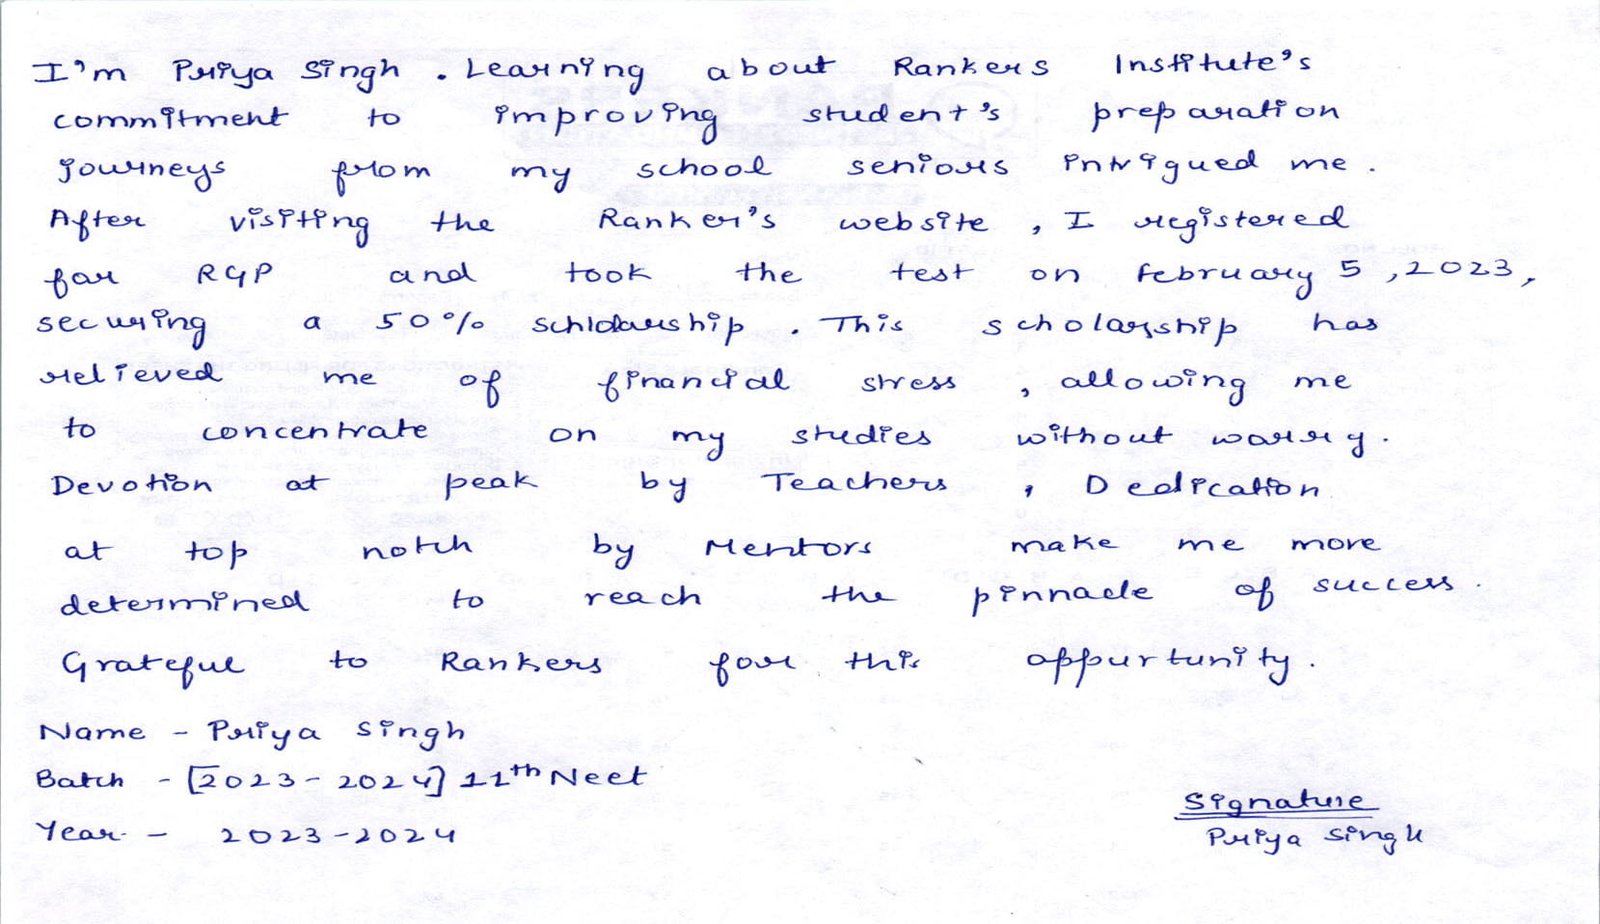 I'm Priya Singh . Learning about Rankers Institute's
commitment to improving student's preparation
journeys from my school seniors intrigued me .
After visiting the Ranker's website , I registered
for RGP and took the test on february 5 , 2023 ,
securing a 50% scholarship . This scholarship has
relieved me of financial stress , allowing me
to concentrate on my studies without worry .
Devotion at peak by Teachers , Dedication
at top notch by Mentors make me more
determined to reach the pinnacle of success .
Grateful to Rankers for this oppurtunity .
Name - Priya Singh
Batch - [2023 - 2024] 11th Neet
Year - 2023 - 2024
Signature
Priya Singh